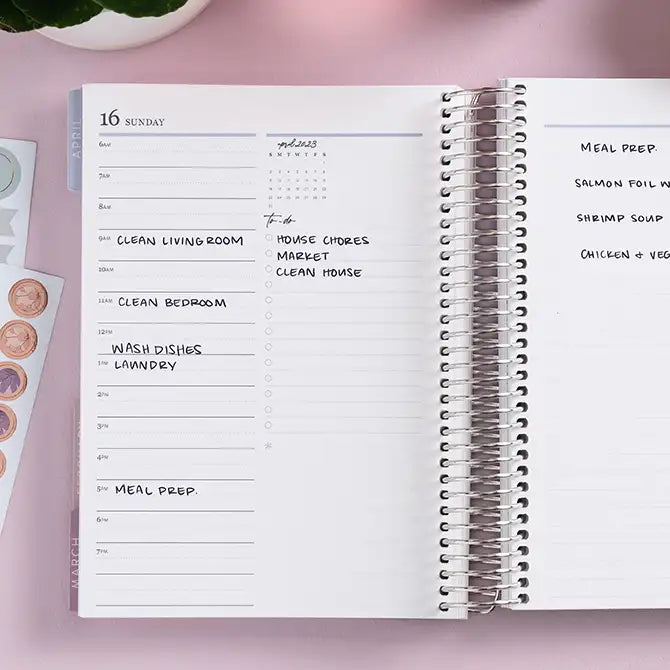 APRIL
16 SUNDAY
6AM
7AM
8AM
9AM CLEAN LIVING ROOM
10AM
11AM CLEAN BEDROOM
12PM
WASH DISHES
1PM LAUNDRY
2PM
3PM
4PM
5PM MEAL PREP.
6PM
7PM
april 2023
S M T W T F S
to-do
HOUSE CHORES
MARKET
CLEAN HOUSE
*
MARCH
MEAL PREP.
SALMON FOIL W
SHRIMP SOUP
CHICKEN + VEG